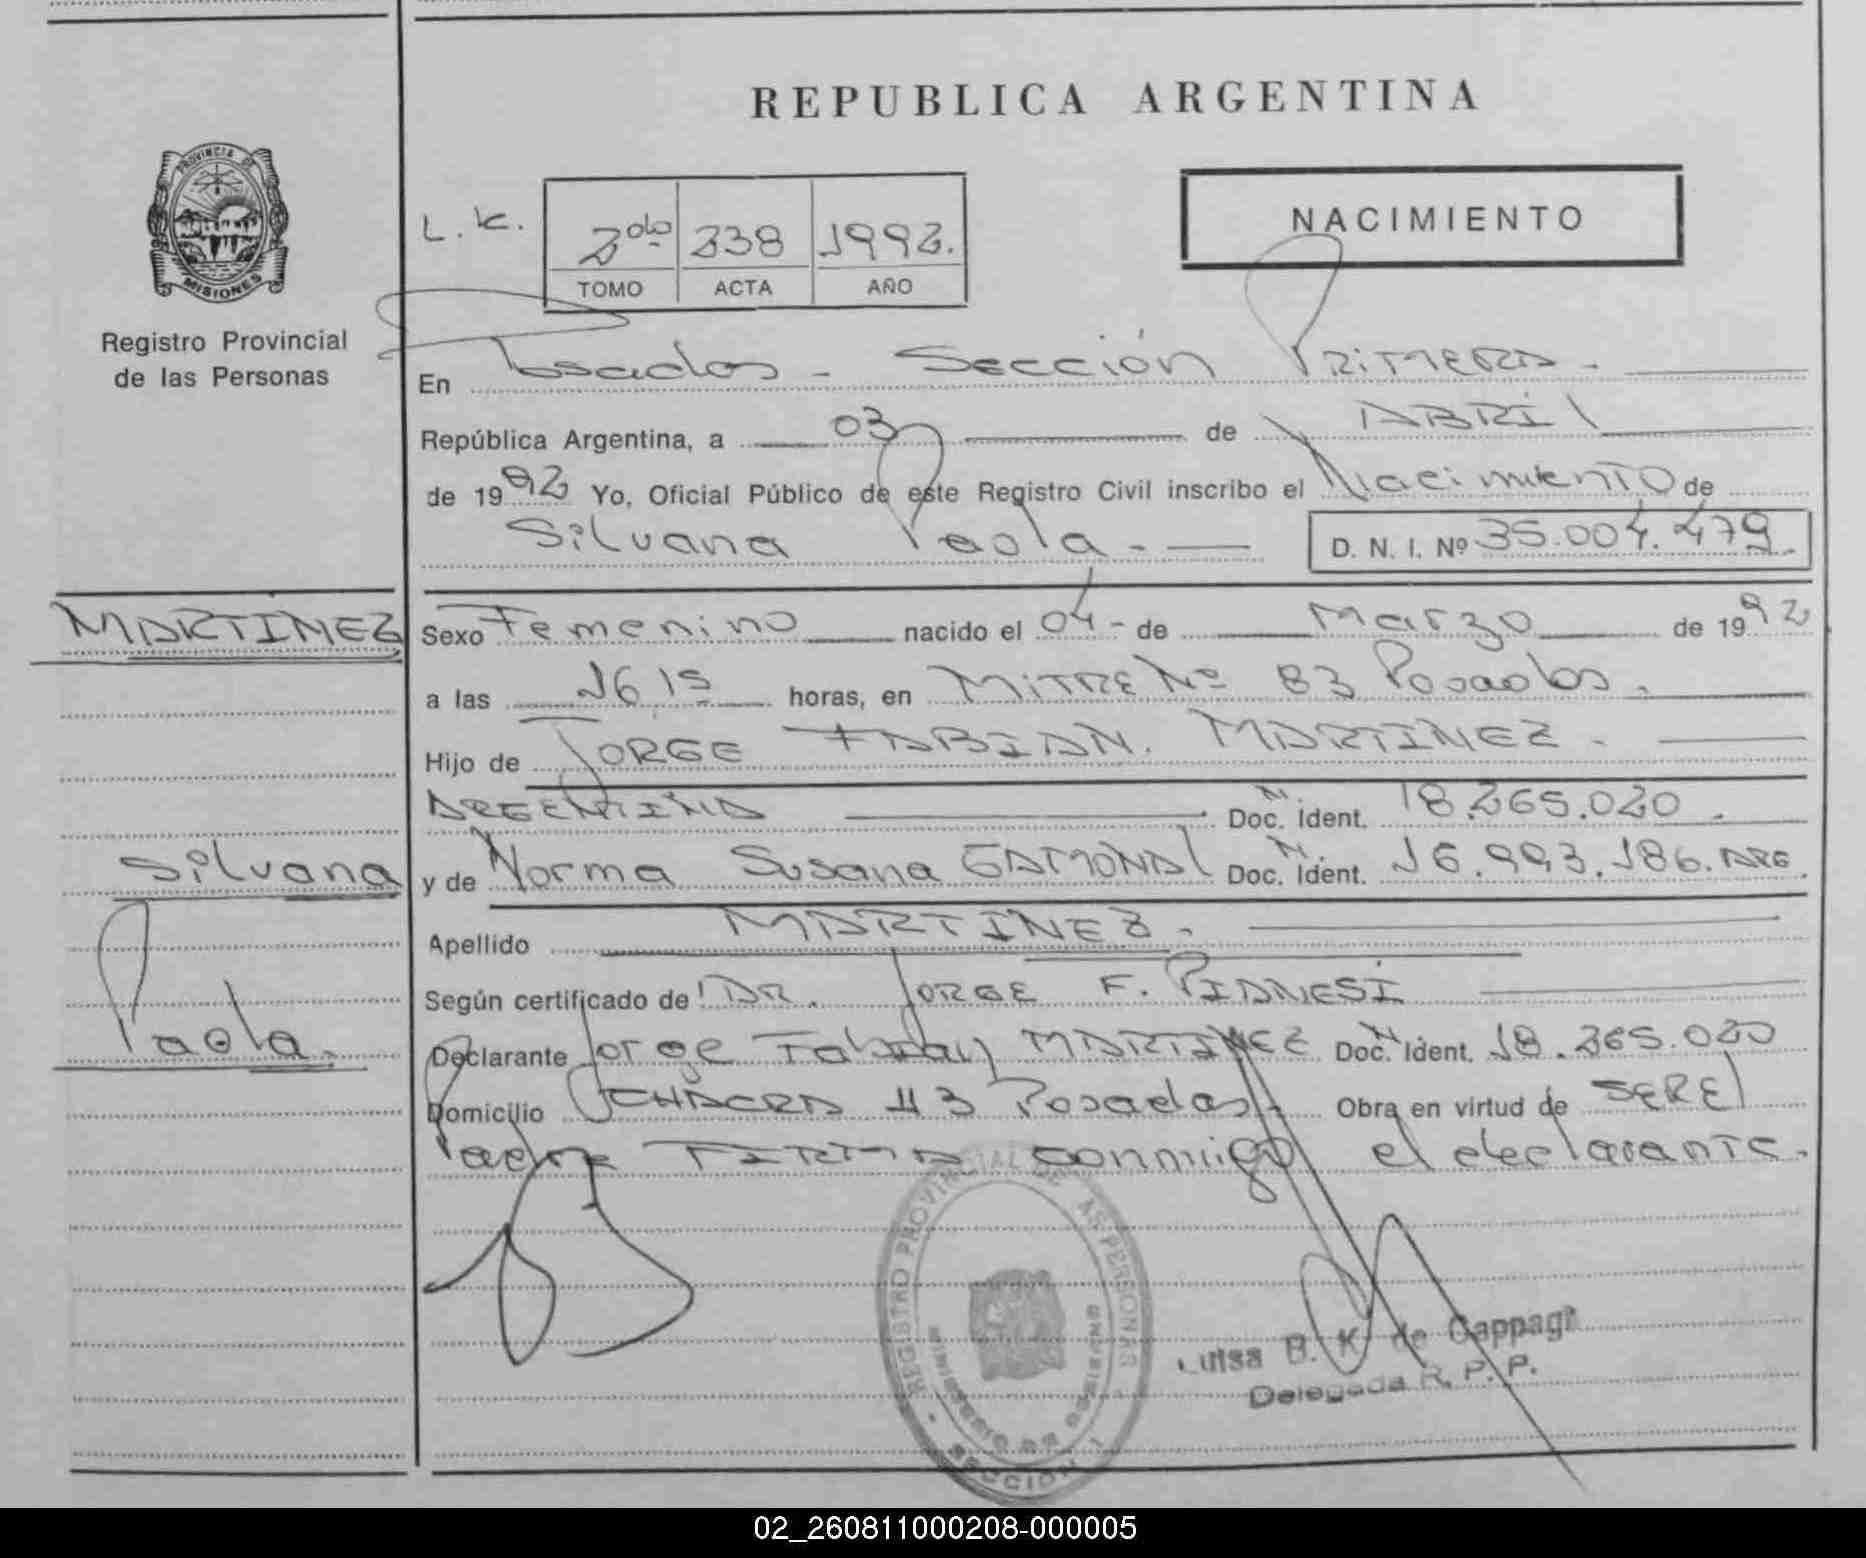 REPUBLICA ARGENTINA
PROVINCIA DE
MISIONES
Registro Provincial
de las Personas
L. K.
2do 238 1992.
TOMO ACTA AÑO
NACIMIENTO
En Posadas - Sección PRIMERA -
República Argentina, a 03 de ABRIL
de 1992 Yo, Oficial Público de este Registro Civil inscribo el Nacimiento de
Silvana Paola - D. N. I. Nº 35.004.479.
MARTINEZ
Sexo Femenino nacido el 04 - de Marzo de 1992
a las 16,15 horas, en MITRE Nº 83 Posadas.
Hijo de JORGE FABIAN. MARTINEZ -
ARGENTINA Doc. Ident. N. 18.265.020.
Silvana
y de Norma Susana GAMONAL Doc. Ident. N. 16.993.186. ARG
Apellido MARTINEZ.
Según certificado de DR. JORGE F. PIANESI
Paola.
Declarante Jorge Fabian MARTINEZ Doc. Ident. N 18.265.020
Domicilio CHACRA 113 Posadas - Obra en virtud de SER El
Padre FIRMA conmigo el declarante.
REGISTRO PROVINCIAL DE LAS PERSONAS
SECCION 1
Luisa B. K. de Cappagli
Delegada R. P. P.
02_260811000208-000005